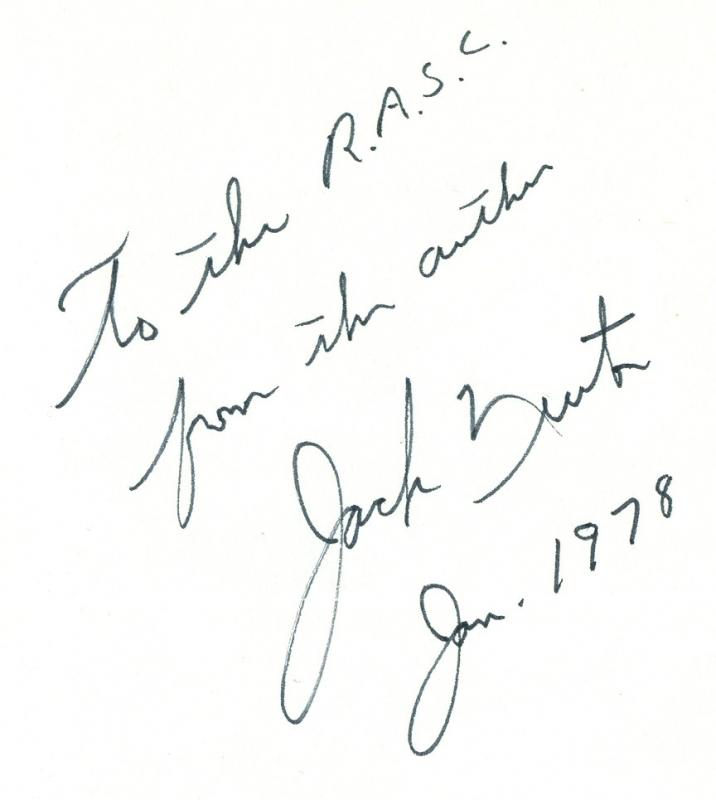 To the R.A.S.C.
from the author
Jack Newton
Jan. 1978